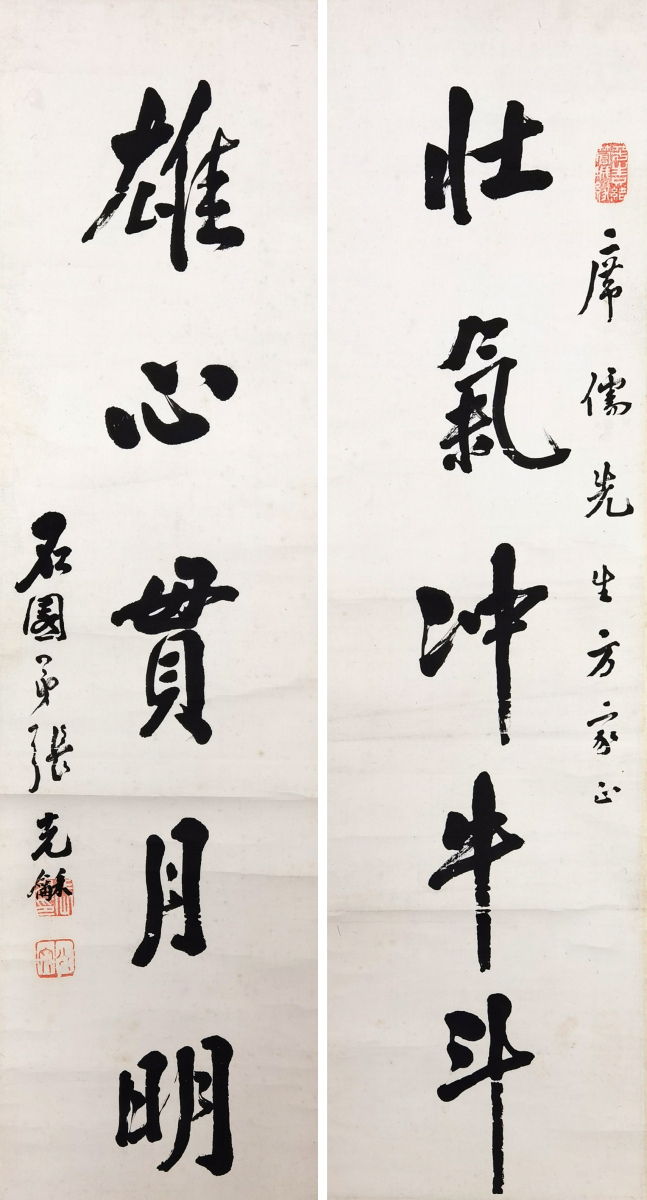 席儒先生方家正
壯氣冲牛斗
雄心貫月明
石園弟張克龢